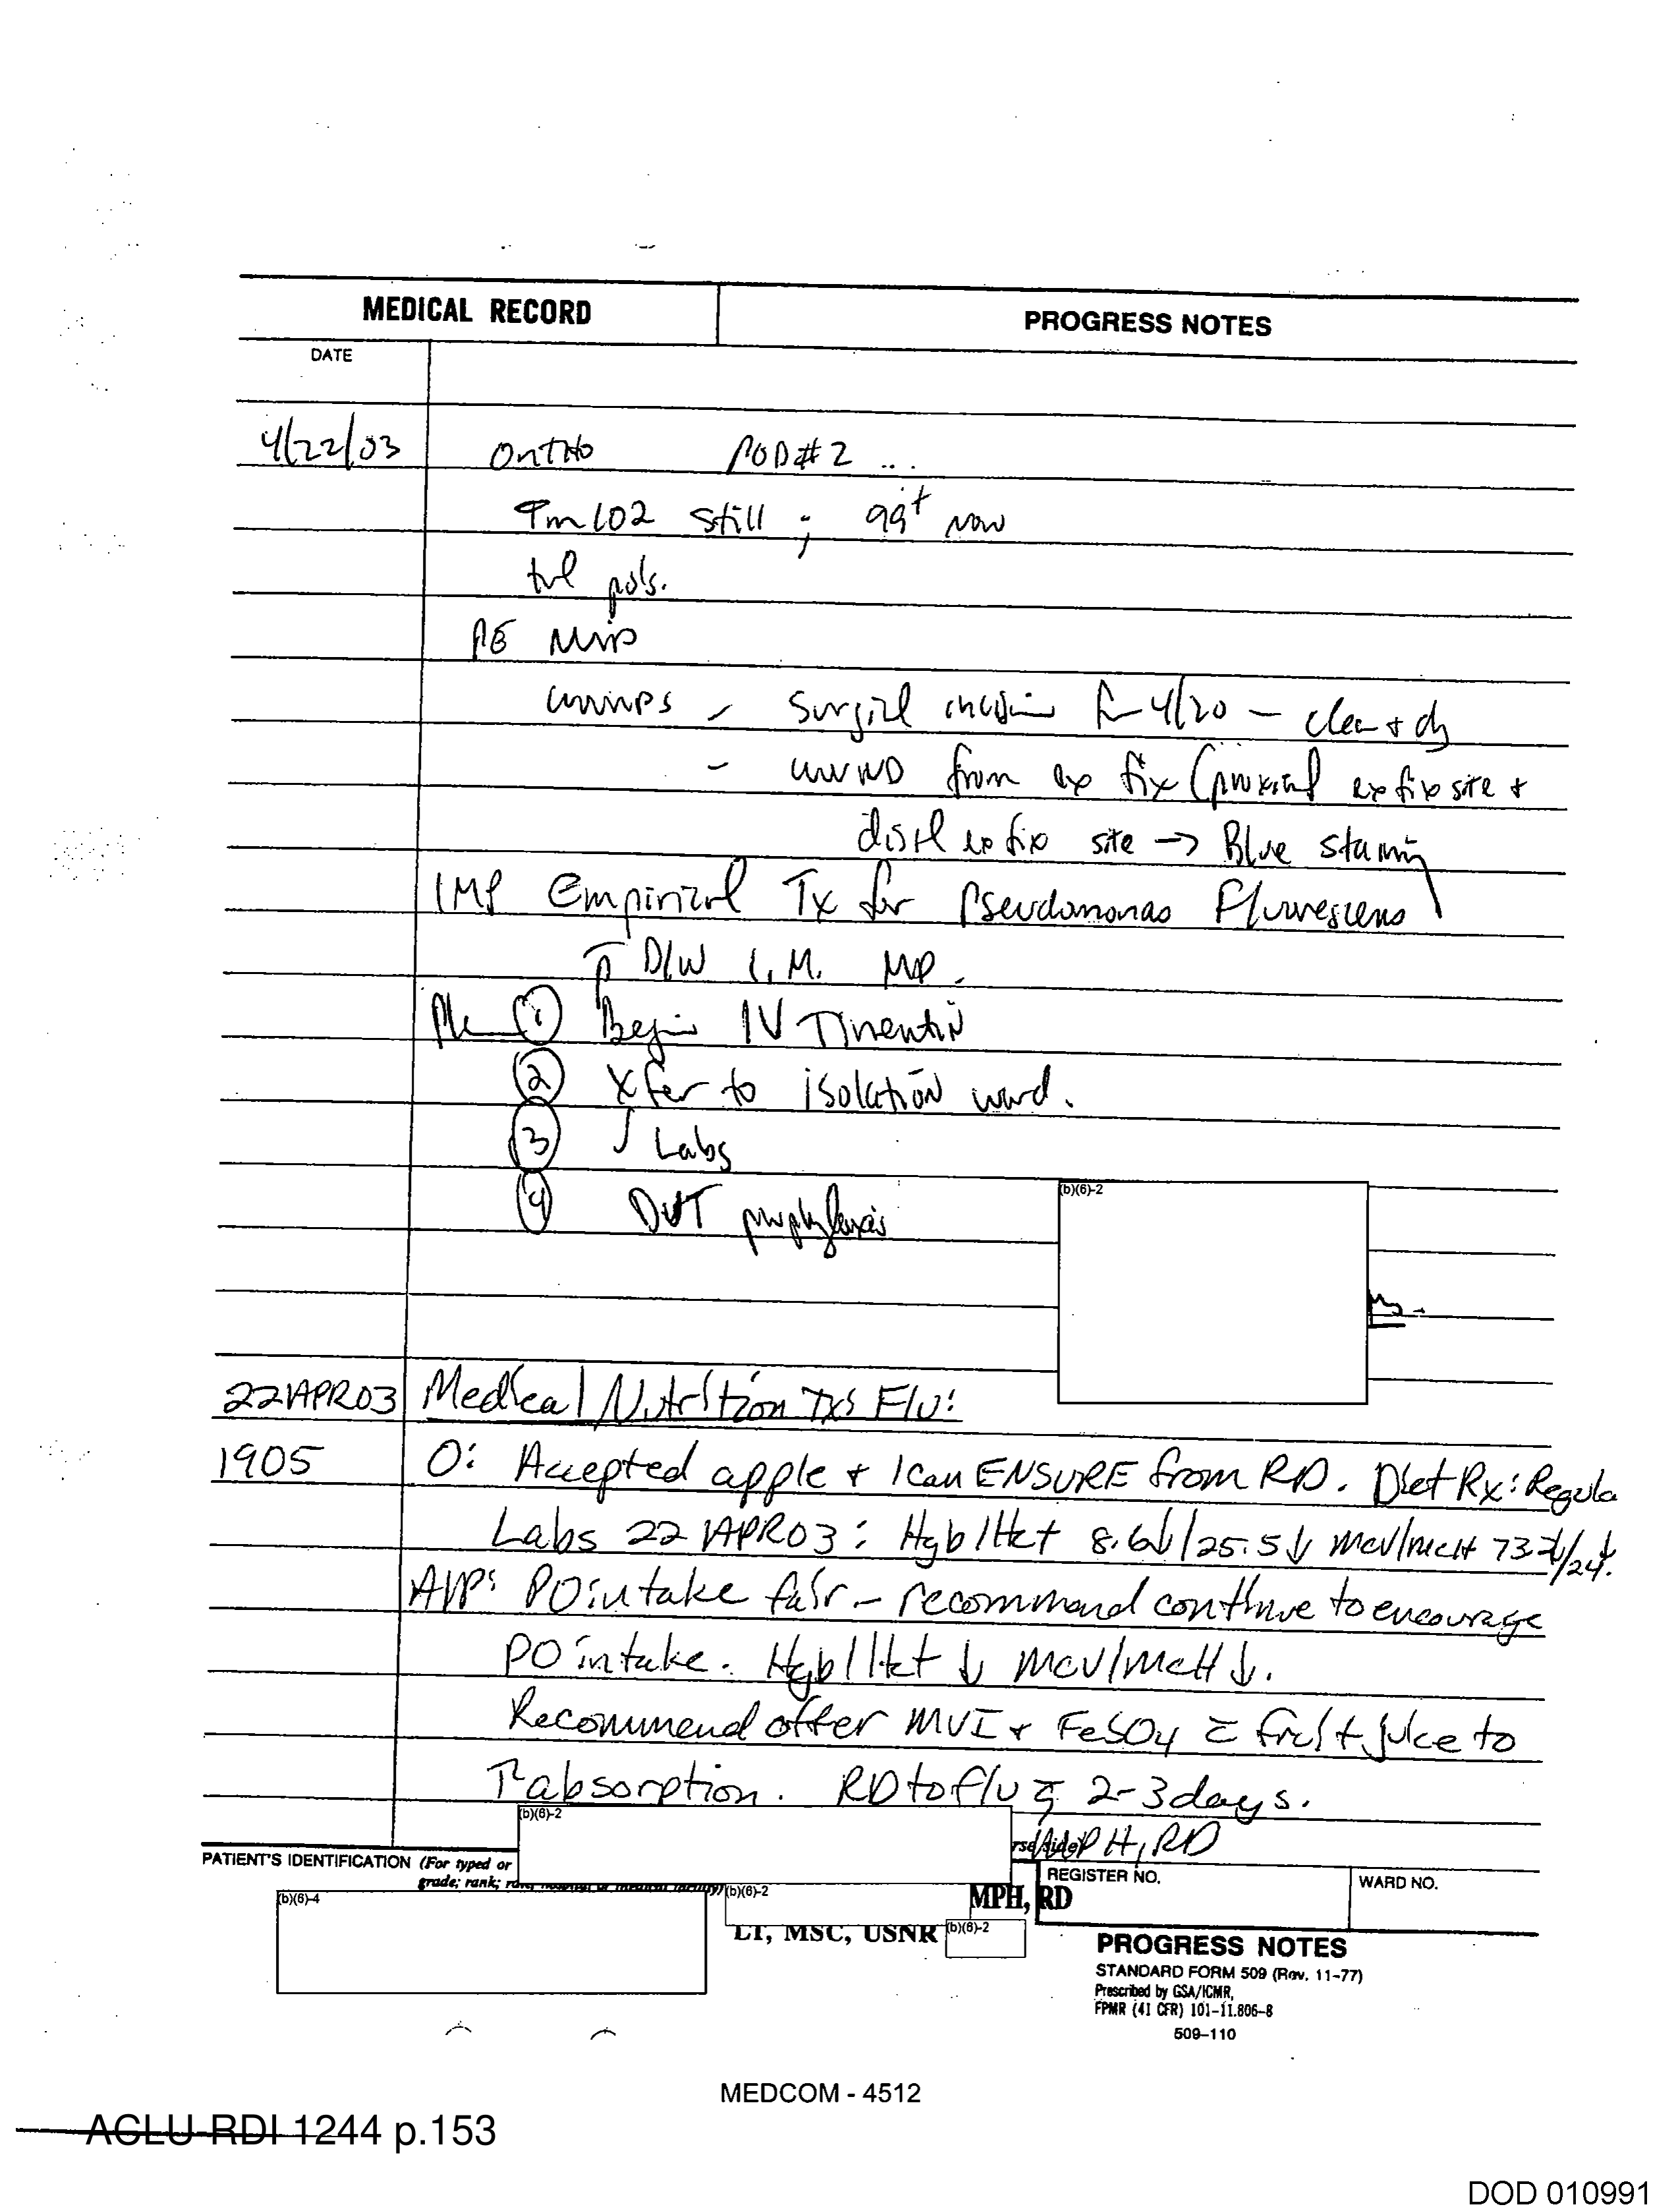 MEDICAL RECORD
PROGRESS NOTES
DATE
4/22/03 Ortho POD#2 ...
Tm 102 still ; 99+ now
tol po's.
PE NVID
wounds - surgical incision 4/20 - clean + dry
- wound from ex fix (proximal ex fix site +
distl ex fix site → Blue staining
IMP Empirical Tx for Pseudomonas Fluorescens
↑ D/W I.M. MD.
Plan ① Begin IV Timentin
② Xfer to isolation ward.
③ √ Labs
④ DVT prophylaxis
(b)(6)-2
22APR03 Medical Nutrition Tx F/U:
1905 O: Accepted apple + 1 can ENSURE from RD. Diet Rx: Regula
Labs 22APR03: Hgb/Hct 8.6↓/25.5↓ MCV/MCH 73.2↓/24↓.
A/P: PO intake fair - recommend continue to encourage
PO intake. Hgb/Hct ↓ MCV/MCH ↓.
Recommend offer MVI + FeSO4 c̄ fruit juice to
↑ absorption. RD to f/u q̄ 2-3 days.
(b)(6)-2
MPH, RD
PATIENT'S IDENTIFICATION (For typed or
grade; rank;
REGISTER NO.
WARD NO.
(b)(6)-4
(b)(6)-2
MPH, RD
LT, MSC, USNR (b)(6)-2
PROGRESS NOTES
STANDARD FORM 509 (Rev. 11-77)
Prescribed by GSA/ICMR,
FPMR (41 CFR) 101-11.806-8
509-110
MEDCOM - 4512
ACLU-RDI 1244 p.153
DOD 010991